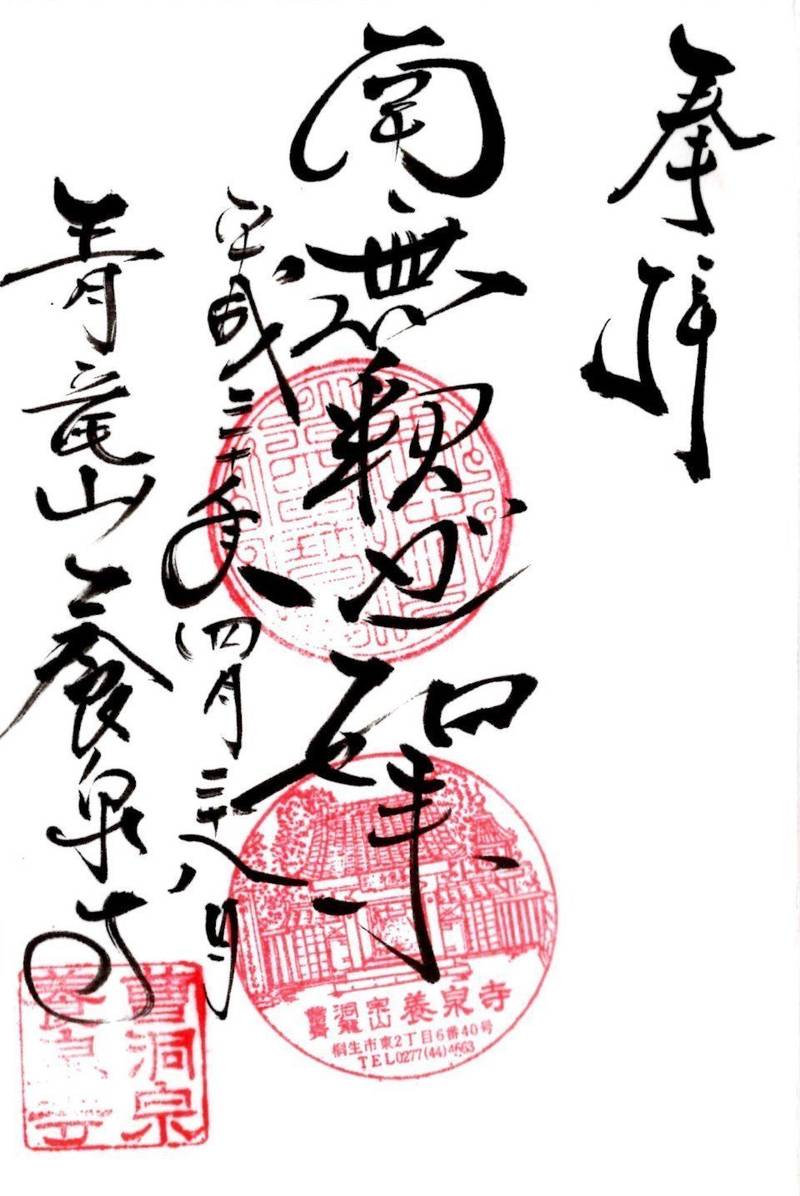 奉拝
南無釈迦牟尼仏
平成三十年四月二十八日
青竜山養泉寺
曹洞宗 養泉寺
桐生市東2丁目6番40号
TEL0277(44)4663
曹洞宗
養泉寺